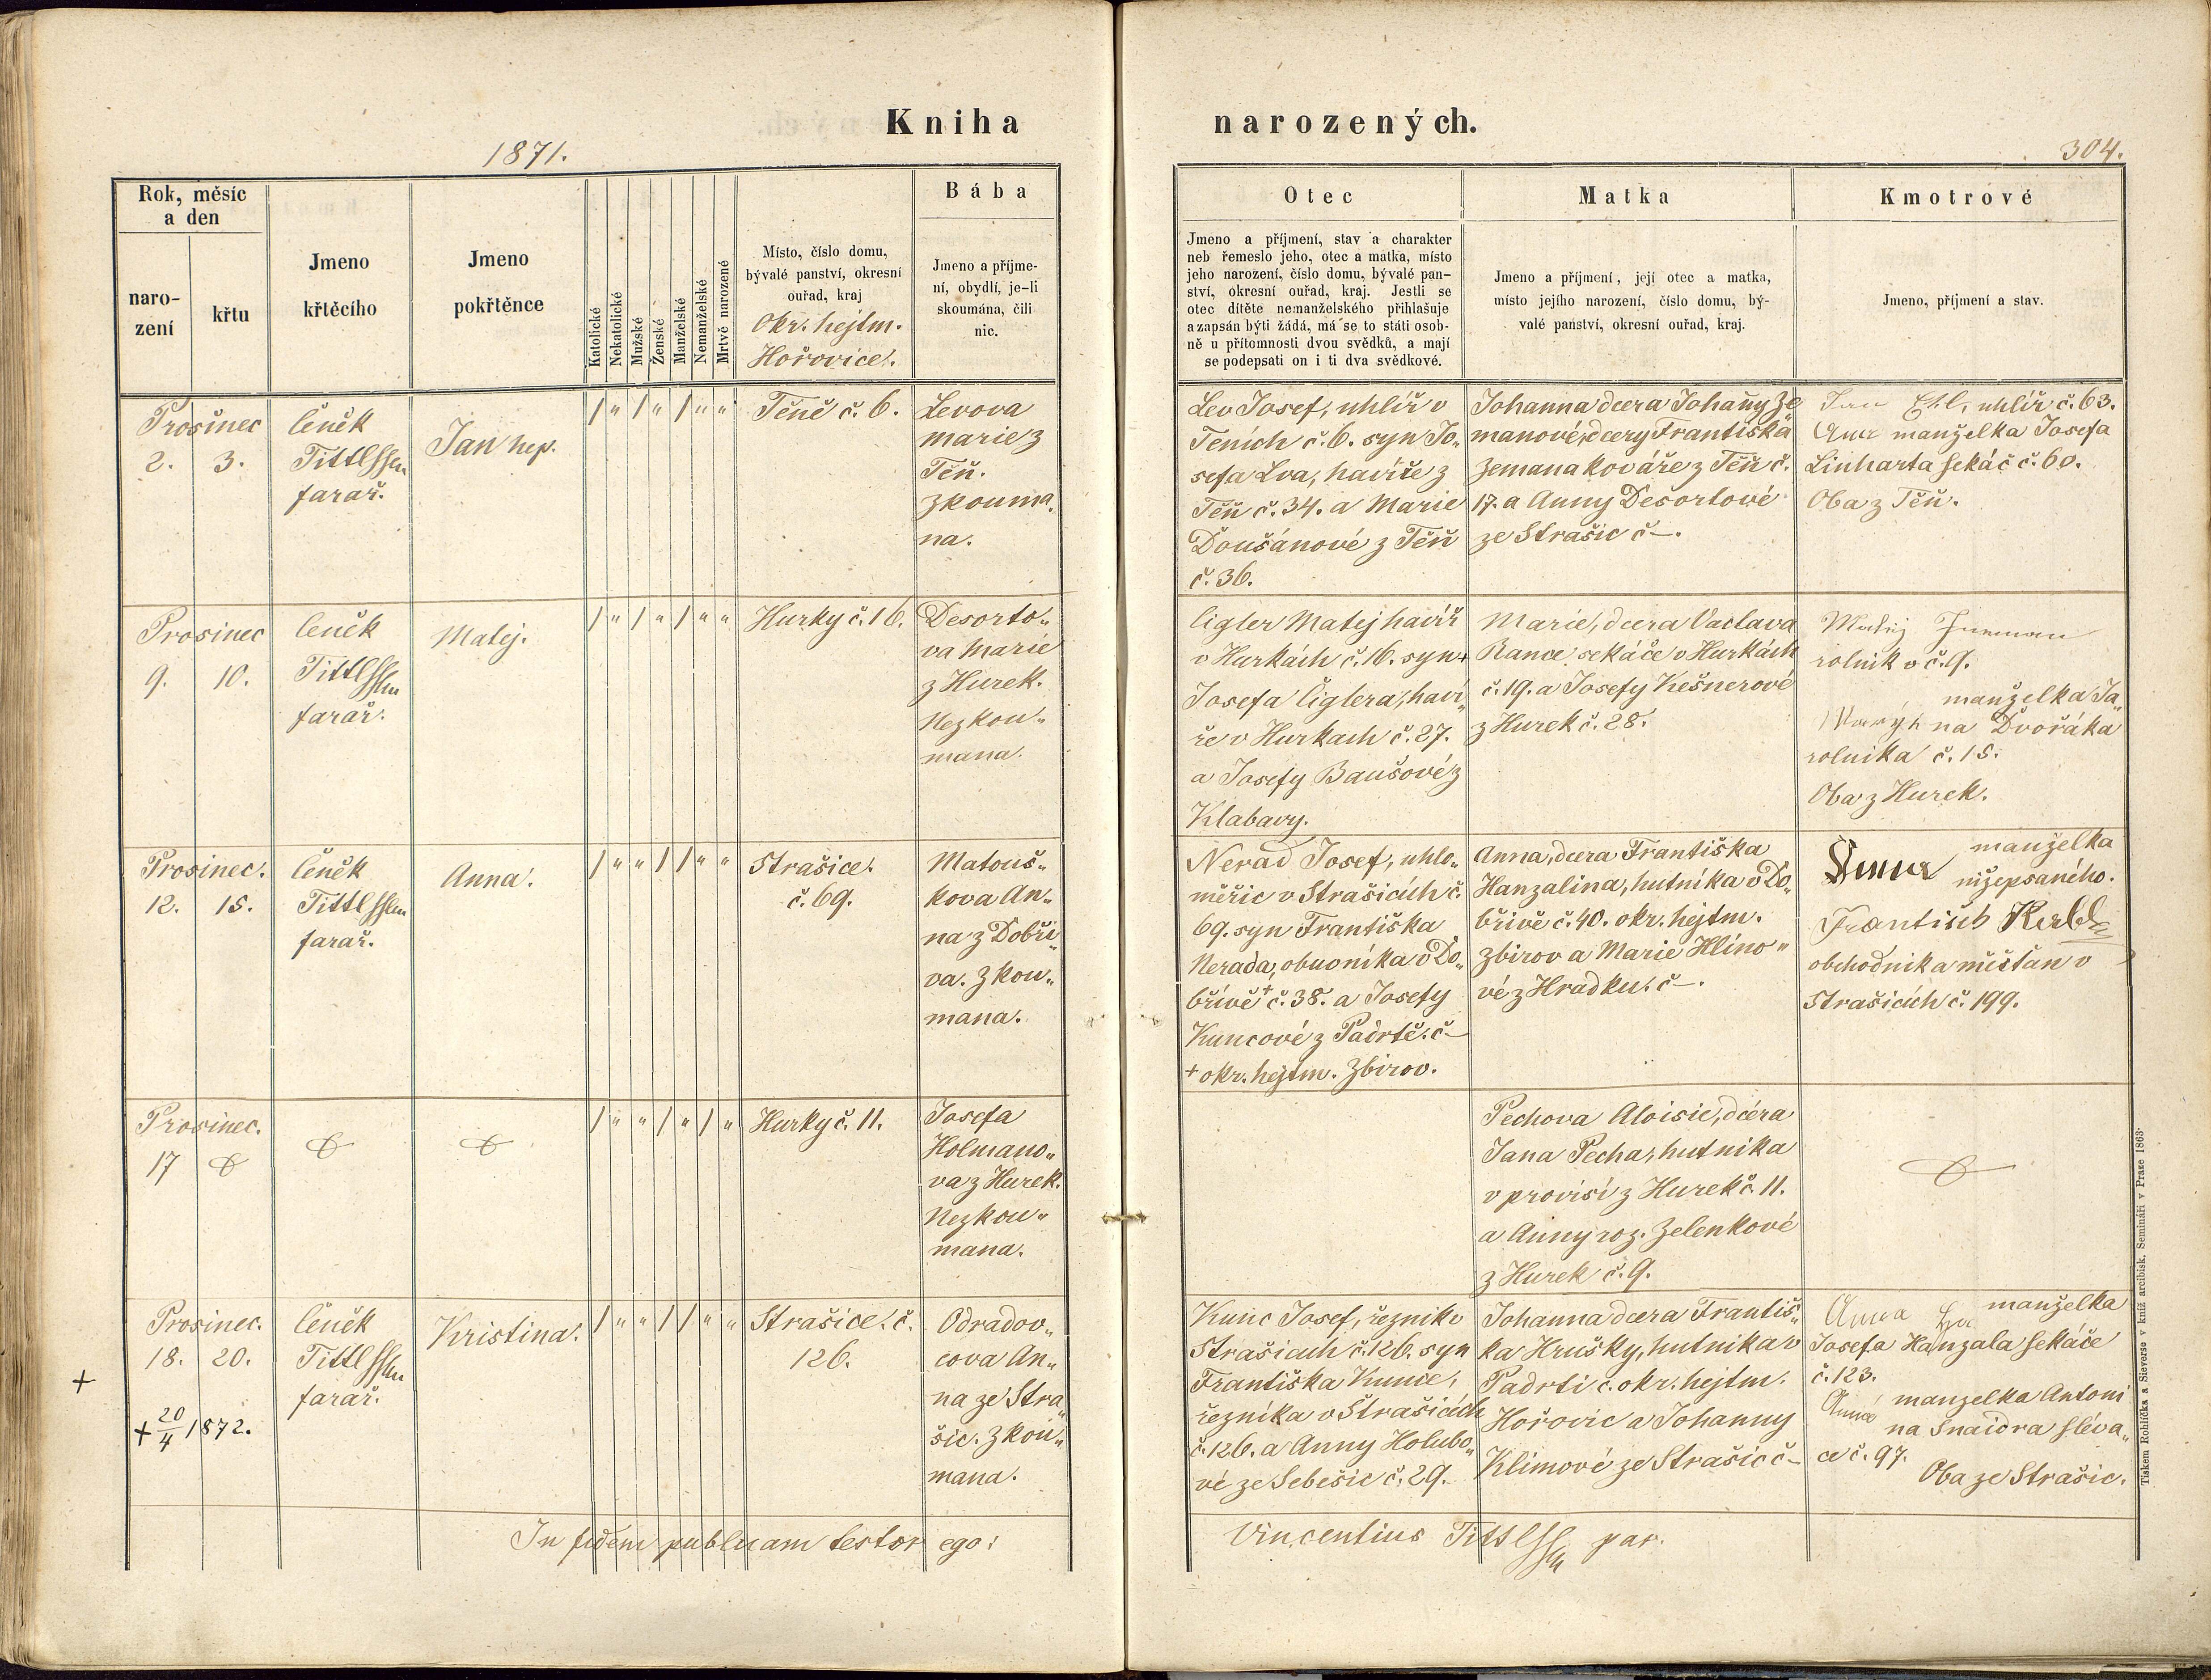 Kniha
1871.
Rok, měsíc
a den
naro-
zení
křtu
Jmeno
křtěcího
Jmeno
pokřtěnce
Katolické
Nekatolické
Mužské
Ženské
Manželské
Nemanželské
Mrtvě narozené
Místo, číslo domu,
bývalé panství, okresní
ouřad, kraj
Okr. hejtm.
Hořovice.
Bába
Jmeno a příjme-
ní, obydlí, je-li
skoumána, čili
nic.
Prosinec
2. 3.
Čeněk
Tittl
farář.
Jan nep.
/ " / " / " "
Těně č. 6.
Levova
Marie z
Těň.
Zkouma„
na.
Prosinec
9. 10.
Čeněk
Tittl
farář.
Matej.
/ " / " / " "
Hurky č. 16.
Desorto„
va Marie
z Hurek.
Nezkou„
mana.
Prosinec.
12. 15.
Čeněk
Tittl
farář.
Anna.
/ " " / / " "
Strašice.
č. 69.
Matouš„
kova An„
na z Dobři„
va. Zkou„
mana.
Prosinec.
17
/ " " / " / "
Hurky č. 11.
Josefa
Holmano„
va z Hurek.
Nezkou„
mana.
Prosinec.
18. 20.
+ 20/4 1872.
+
Čeněk
Tittl
farář.
Kristina.
/ " " / / " "
Strašice. č.
126.
Odradov„
cova An„
na ze Stra„
šic. Zkou„
mana.
In fidem publicam testor ego:
narozených.
304.
Otec
Jmeno a příjmení, stav a charakter
neb řemeslo jeho, otec a matka, místo
jeho narození, číslo domu, bývalé pan-
ství, okresní ouřad, kraj. Jestli se
otec dítěte nemanželského přihlašuje
a zapsán býti žádá, má se to státi osob-
ně u přítomnosti dvou svědků, a mají
se podepsati on i ti dva svědkové.
Matka
Jmeno a příjmení, její otec a matka,
místo jejího narození, číslo domu, bý-
valé panství, okresní ouřad, kraj.
Kmotrové
Jmeno, příjmení a stav.
Lev Josef, uhlíř v
Těních č. 6. syn Jo„
sefa Lva, havíře z
Těň č. 34. a Marie
Doušánové z Těň
č. 36.
Johanna dcera Johany Ze
manové, dcery Františka
Zemana kováře z Těň č.
17. a Anny Desortové
ze Strašic č –.
Jan uhlíř č. 63.
manželka Josefa
Linharta sekáč č. 60.
Oba z Těň.
Cigler Matej havíř
v Hurkách č. 16. syn +
Josefa Ciglera, haví„
ře v Hurkach č. 27.
a Josefy Baušové z
Klabavy.
Marie, dcera Vaclava
Rance sekáče v Hurkách
č. 19. a Josefy Kešnerové
z Hurek č. 28.
Matěj
rolnik v č. 9.
manželka Ja„
na Dvořáka
rolnika č. 15.
Oba z Hurek.
Nerad Josef, uhlo„
měřic v Strašicích č.
69. syn Františka
Nerada, obuvníka v Do„
břívě + č. 38. a Josefy
Kuncové z Padrtě. č –
+ okr. hejtm. Zbirov.
Anna, dcera Františka
Hanzalina, hutníka v Do„
břívě č. 40. okr. hejtm.
Zbirov a Marie Hlíno„
vé z Hradku. č –.
Anna manželka
nížepsaného.
František
obchodnik a měšťan v
Strašicích č. 199.
Pechova Aloisie, dcera
Jana Pecha, hutnika
v provisí z Hurek č. 11.
a Anny roz. Zelenkové
z Hurek č. 9.
Kunc Josef, řeznik v
Strašicich č. 126. syn
Františka Kunce,
řezníka v Strašicích
č. 126. a Anny Holubo„
vé ze Sebešic č. 29.
Johanna dcera Františ„
ka Hrušky, hutnika v
Padrti č. okr. hejtm.
Hořovic a Johanny
Klimové ze Strašic č –
Anna manželka
Josefa Hanzala sekáče
č. 123.
Anna manželka Antoni
na Snaidra sléva„
ce č. 97.
Oba ze Strašic.
Vincentius Tittl par.
Tiskem Rohlíčka a Sieverse v kníž. arcibisk. Semináři v Praze 1863.